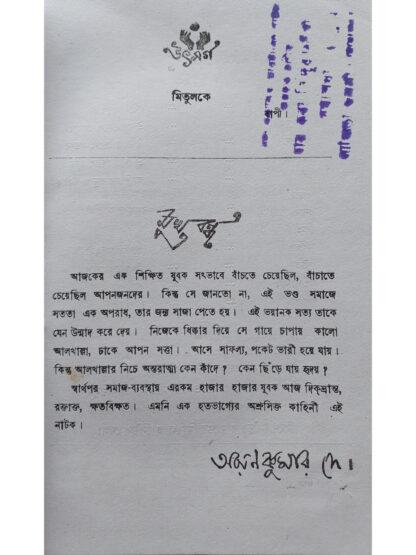 উৎসর্গ
মিতুলকে
বাপী।
মুখবন্ধ
আজকের এক শিক্ষিত যুবক সৎভাবে বাঁচতে চেয়েছিল, বাঁচাতে
চেয়েছিল আপনজনদের। কিন্তু সে জানতো না, এই ভণ্ড সমাজে
সততা এক অপরাধ, তার জন্য সাজা পেতে হয়। এই ভয়ানক সত্য তাকে
যেন উন্মাদ করে দেয়। নিজেকে ধিক্কার দিয়ে সে গায়ে চাপায় কালো
আলখাল্লা, ঢাকে আপন সত্তা। আসে সাফল্য, পকেট ভারী হয়ে যায়।
কিন্তু আলখাল্লার নিচে অন্তরাত্মা কেন কাঁদে? কেন ছিঁড়ে যায় হৃদয়?
স্বার্থপর সমাজ-ব্যবস্থায় এরকম হাজার হাজার যুবক আজ দিকভ্রান্ত,
রক্তাক্ত, ক্ষতবিক্ষত। এমনি এক হতভাগ্যের অশ্রুসিক্ত কাহিনী এই
নাটক।
অরুণকুমার দে।